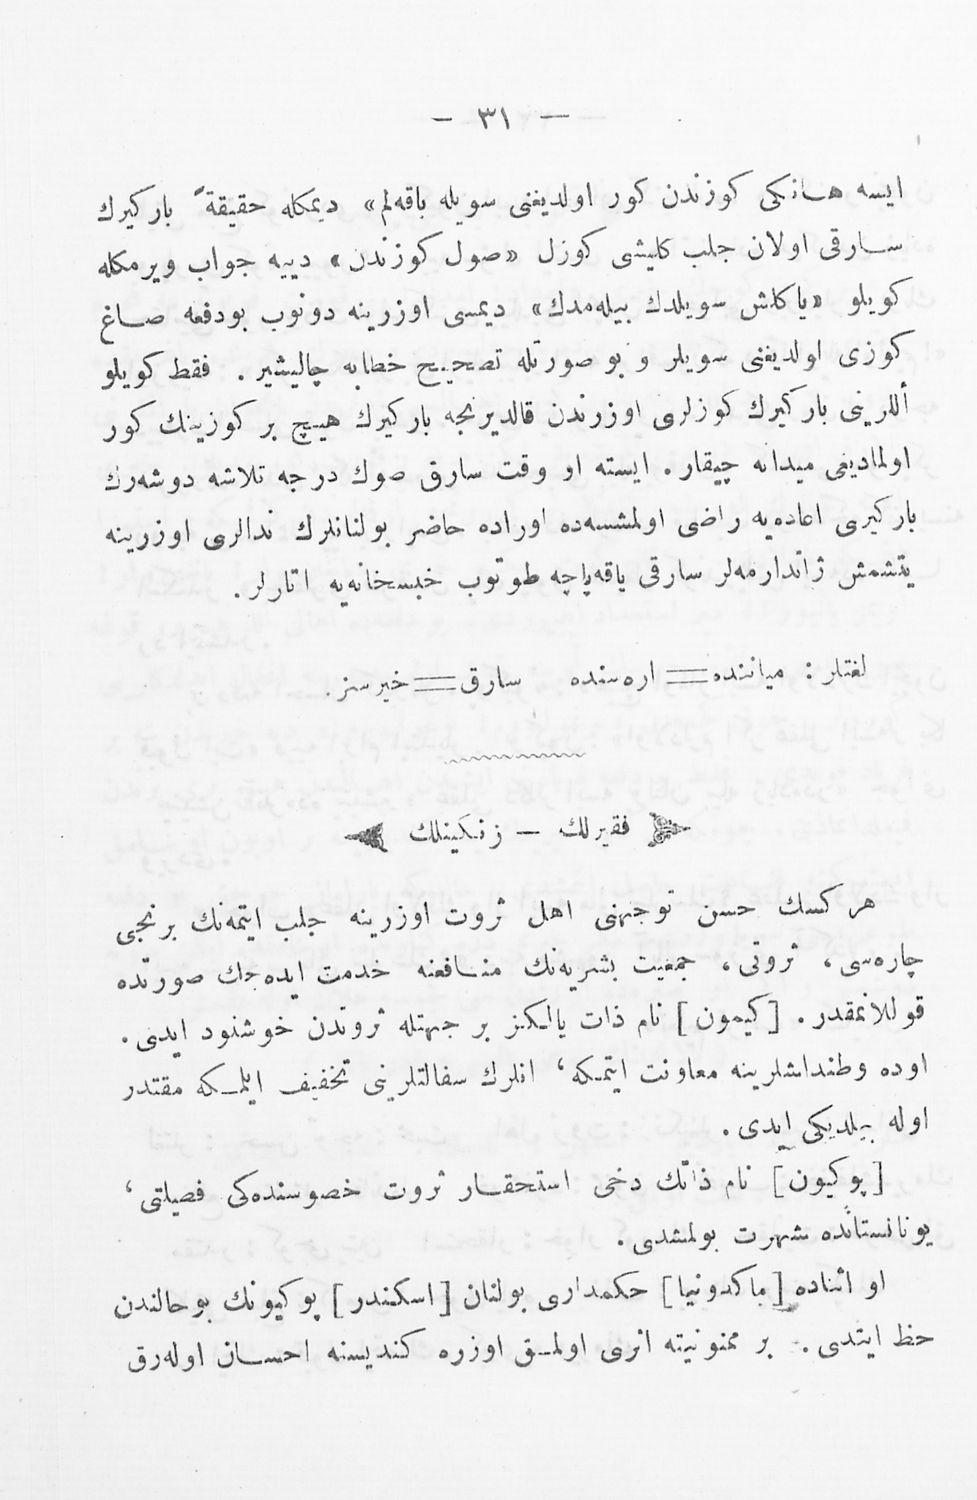 — ٣١ —
ايسه هانكى كوزندن كور اولديغنى سويله باقەلم» ديمكله حقيقةً باركيرك
سارقى اولان جلب كليشى كوزل «صول كوزندن» دييه جواب ويرمكله
كويلو «ياكلش سويلدك بيلەمدك» ديمسى اوزرينه دونوب بودفعه صاغ
كوزى اولديغنى سويلر و بو صورتله تصحيح خطايه چاليشير. فقط كويلو
أللرينى باركيرك كوزلرى اوزرندن قالديرنجه باركيرك هيچ بر كوزينك كور
اولماديغى ميدانه چيقار. ايسته او وقت سارق صوك درجه تلاشه دوشەرك
باركيرى اعادەيه راضى اولمشسەده اوراده حاضر بولنانلرك ندالرى اوزرينه
يتشمش ژاندارمەلر سارقى ياقەپاچه طوتوب خبسخانەيه اتارلر.
لغتلر: مياننده = ارەسنده سارق = خيرسز.
فقيرلك — زنكينلك
هركسك حسن توجهنى اهل ثروت اوزرينه جلب ايتمەنك برنجى
چارەسى، ثروتى، جمعيت بشريەنك منافعنه خدمت ايدەجك صورتده
قوللانمقدر. [كيمون] نام ذات يالكز بر جهتله ثروتدن خوشنود ايدى.
اوده وطنداشلرينه معاونت ايتمكه، انلرك سفالتلرينى تخفيف ايلمكه مقتدر
اوله بيلديكى ايدى.
[پوكيون] نام ذاتك دخى استحقار ثروت خصوسندەكى فصيلتى،
يونانستانده شهرت بولمشدى.
او اثناده [ماكدونيا] حكمدارى بولنان [اسكندر] پوكيونك بوحالندن
حظ ايتدى. بر ممنونيته اثرى اولمق اوزره كنديسنه احسان اولەرق